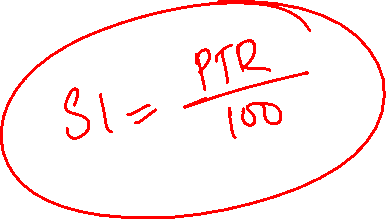 SI = PTR/100